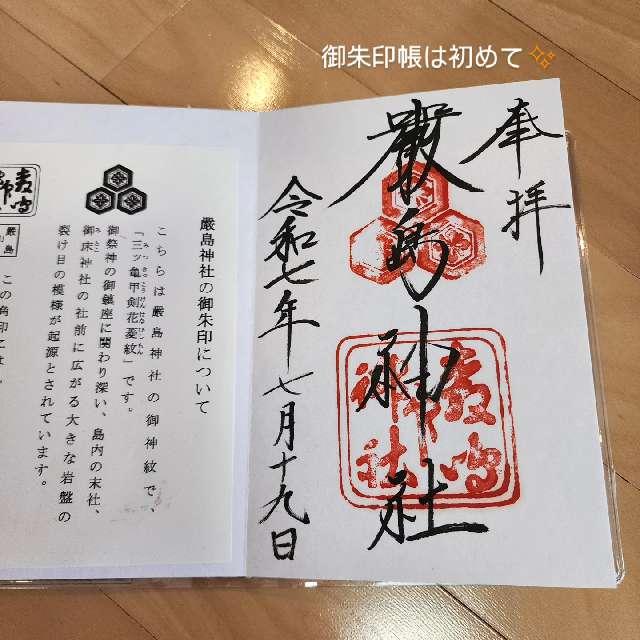 御朱印帳は初めて✨
奉拝
厳島神社
令和七年七月十九日
厳島神社の御朱印について
こちらは厳島神社の御神紋で、
「三ツ亀甲剣花菱紋」です。
御祭神の御鎮座に関わり深い、島内の末社、
御床神社の社前に広がる大きな岩盤の
裂け目の模様が起源とされています。
厳島